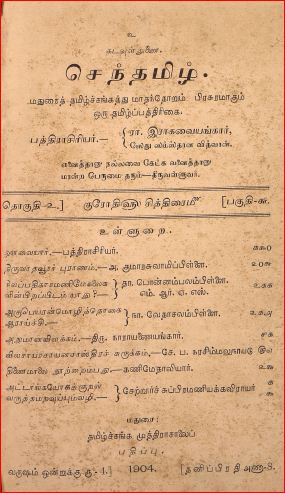 உ
கடவுள்துணை.
செந்தமிழ்.
மதுரைத் தமிழ்ச்சங்கத்து மாதந்தோறும் பிரசுரமாகும்
ஒரு தமிழ்ப்பத்திரிகை.
பத்திராசிரியர்.— ரா. இராகவையங்கார்,
சேது ஸம்ஸ்தான வித்வான்.
எனைத்தானு நல்லவை கேட்க வனைத்தானு
மான்ற பெருமை தரும்—திருவள்ளுவர்.
தொகுதி-உ.] குரோதிஸ்ரீ சித்திரைமீ [பகுதி-௬.
உள்ளுறை.
ஔவையார்.—பத்திராசிரியர்.
திருவாதவூரர் புராணம்.— அ. குமாரசுவாமிப்பிள்ளை.
சிலப்பதிகாரமணிமேகலை
தா. பொன்னம்பலம்பிள்ளை.
எம். ஆர். ஏ. எஸ்.
ஆராய்ச்சி.— நா. வேதாசலம்பிள்ளை.
திரு. நாராயணையங்கார்.
சுருக்கம்.— சே. ப. நரசிம்மலுநாயடு
திணைமாலை நூற்றைம்பது.— கணிமேதாவியார்.
சேற்றூர்ச் சுப்பிரமணியக்கவிராயர்
மதுரை:
தமிழ்ச்சங்க முத்திராசாலைப்
பதிப்பு.
வருஷம் ஒன்றுக்கு ரூ-4.] 1904. [தனிப்பிரதி அணா-8.